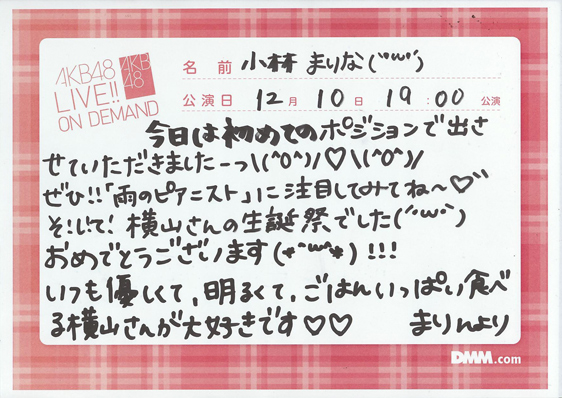 AKB48
LIVE!!
ON DEMAND
AKB
48
名 前 小林 まりな(´･ω･`)
公演日 12月 10日 19:00公演
今日は初めてのポジションで出さ
せていただきましたーっ\(^O^)/♡\(^O^)/
ぜひ!!「雨のピアニスト」に注目してみてね〜♡
そして! 横山さんの生誕祭でした(´･ω･`)
おめでとうございます(*^ω^*)!!!
いつも優しくて、明るくて、ごはんいっぱい食べ
る横山さんが大好きです♡♡ まりんより
DMM.com